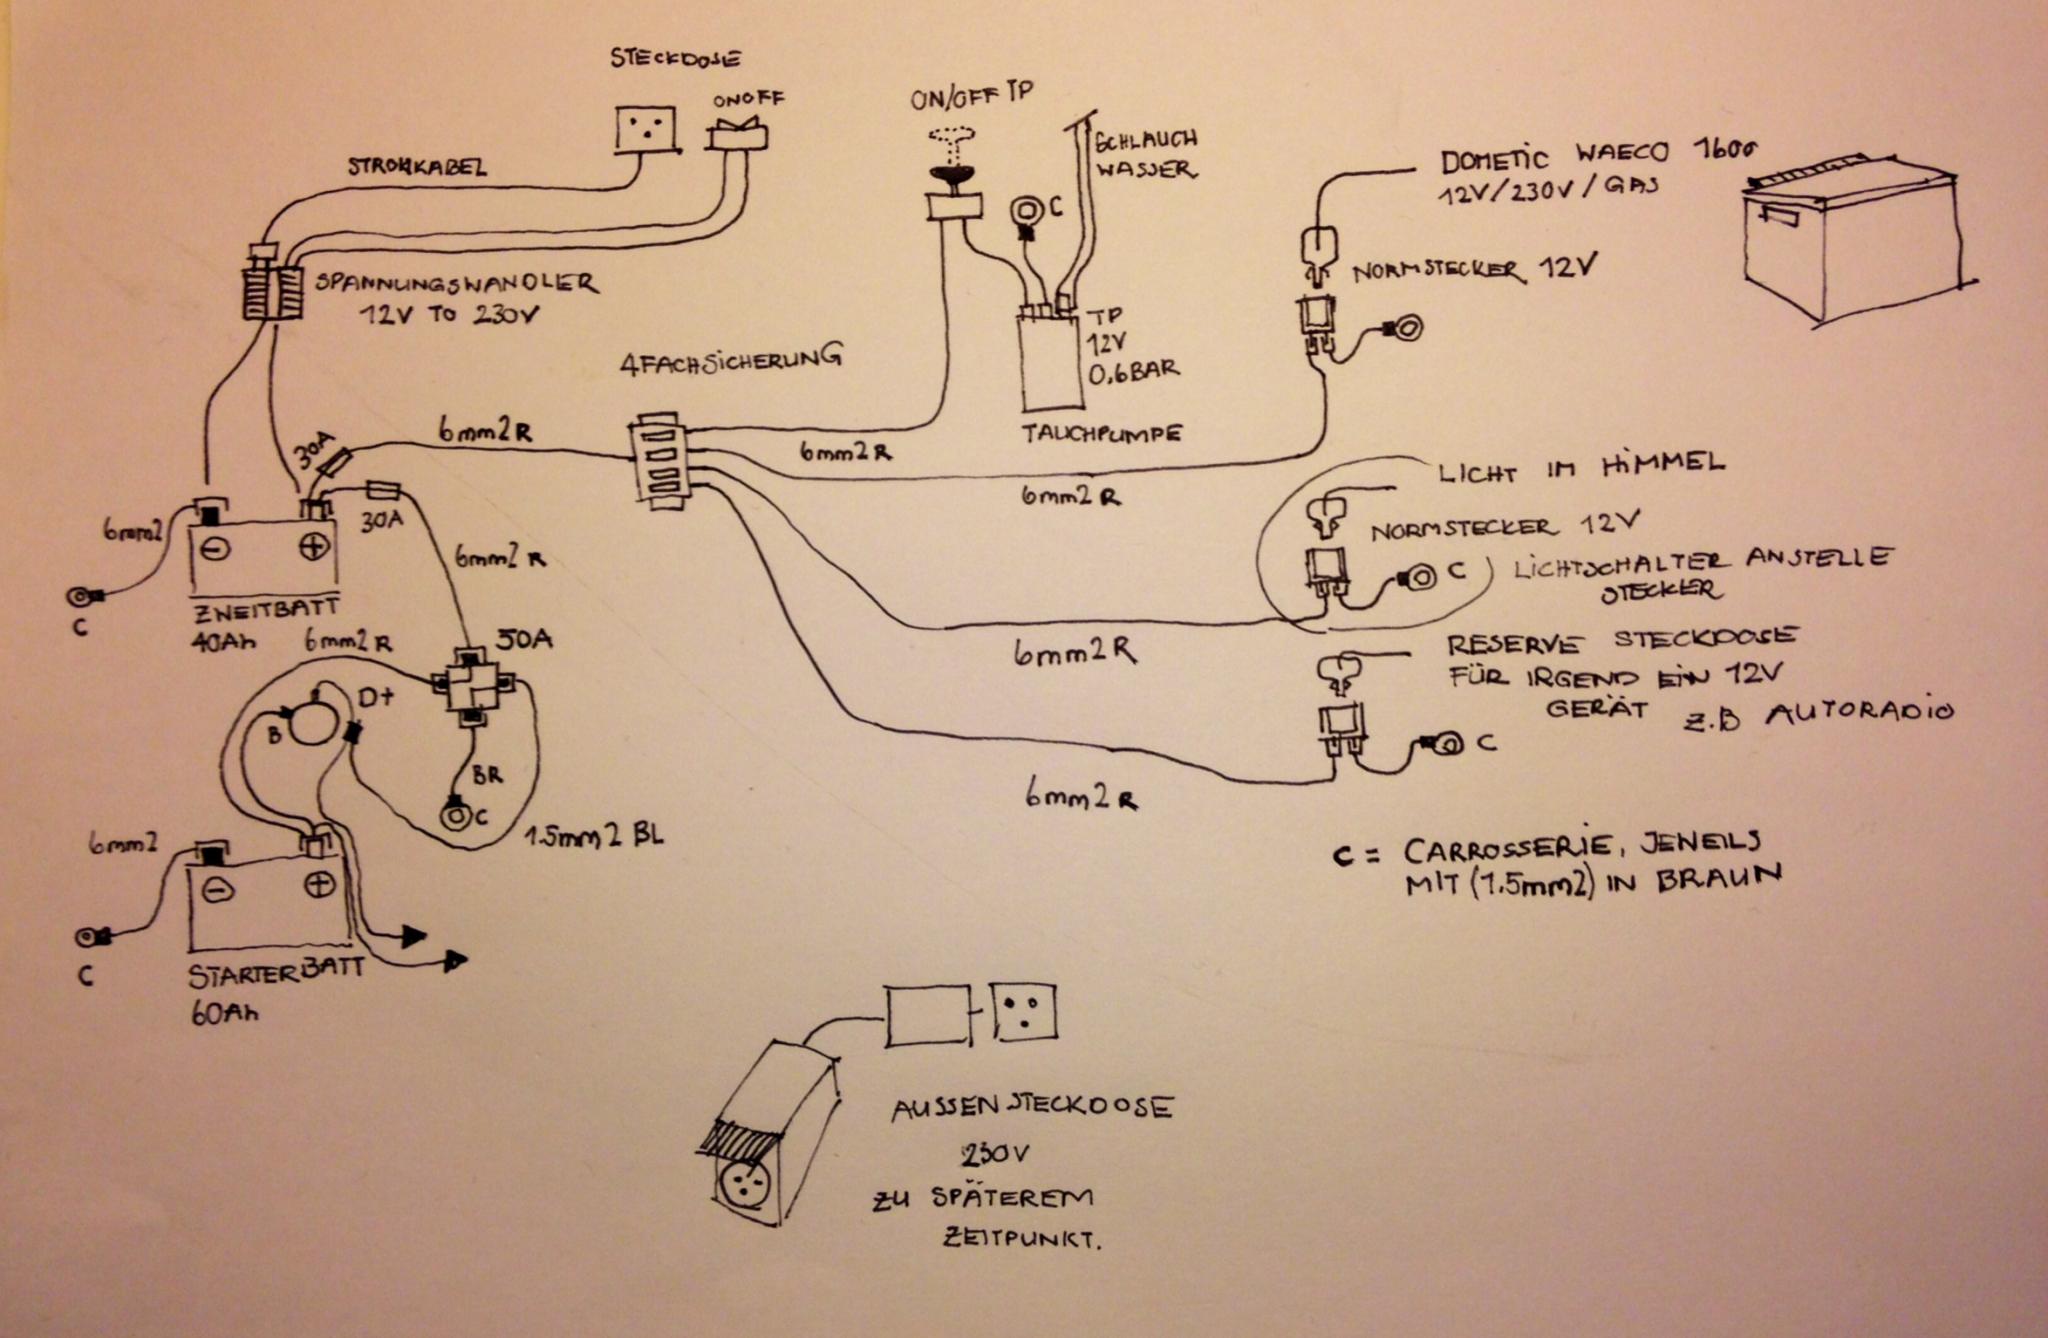 STECKDOSE
ONOFF
STROMKABEL
SPANNUNGSWANDLER
12V TO 230V
ON/OFF TP
SCHLAUCH
WASSER
C
TP
12V
0,6BAR
TAUCHPUMPE
DOMETIC WAECO 1600
12V/230V/GAS
NORMSTECKER 12V
4FACHSICHERUNG
30A
6mm2 R
6mm2 R
6mm2 R
30A
6mm2
C
- +
ZWEITBATT
40Ah
6mm2 R
LICHT IM HIMMEL
NORMSTECKER 12V
C
LICHTSCHALTER ANSTELLE
STECKER
6mm2 R
6mm2 R
50A
D+
B
BR
C
1.5mm2 BL
RESERVE STECKDOSE
FÜR IRGEND EIN 12V
GERÄT Z.B AUTORADIO
C
6mm2 R
6mm2
C
- +
STARTERBATT
60Ah
C = CARROSSERIE, JEWEILS
MIT (1.5mm2) IN BRAUN
AUSSENSTECKDOSE
230V
ZU SPÄTEREM
ZEITPUNKT.